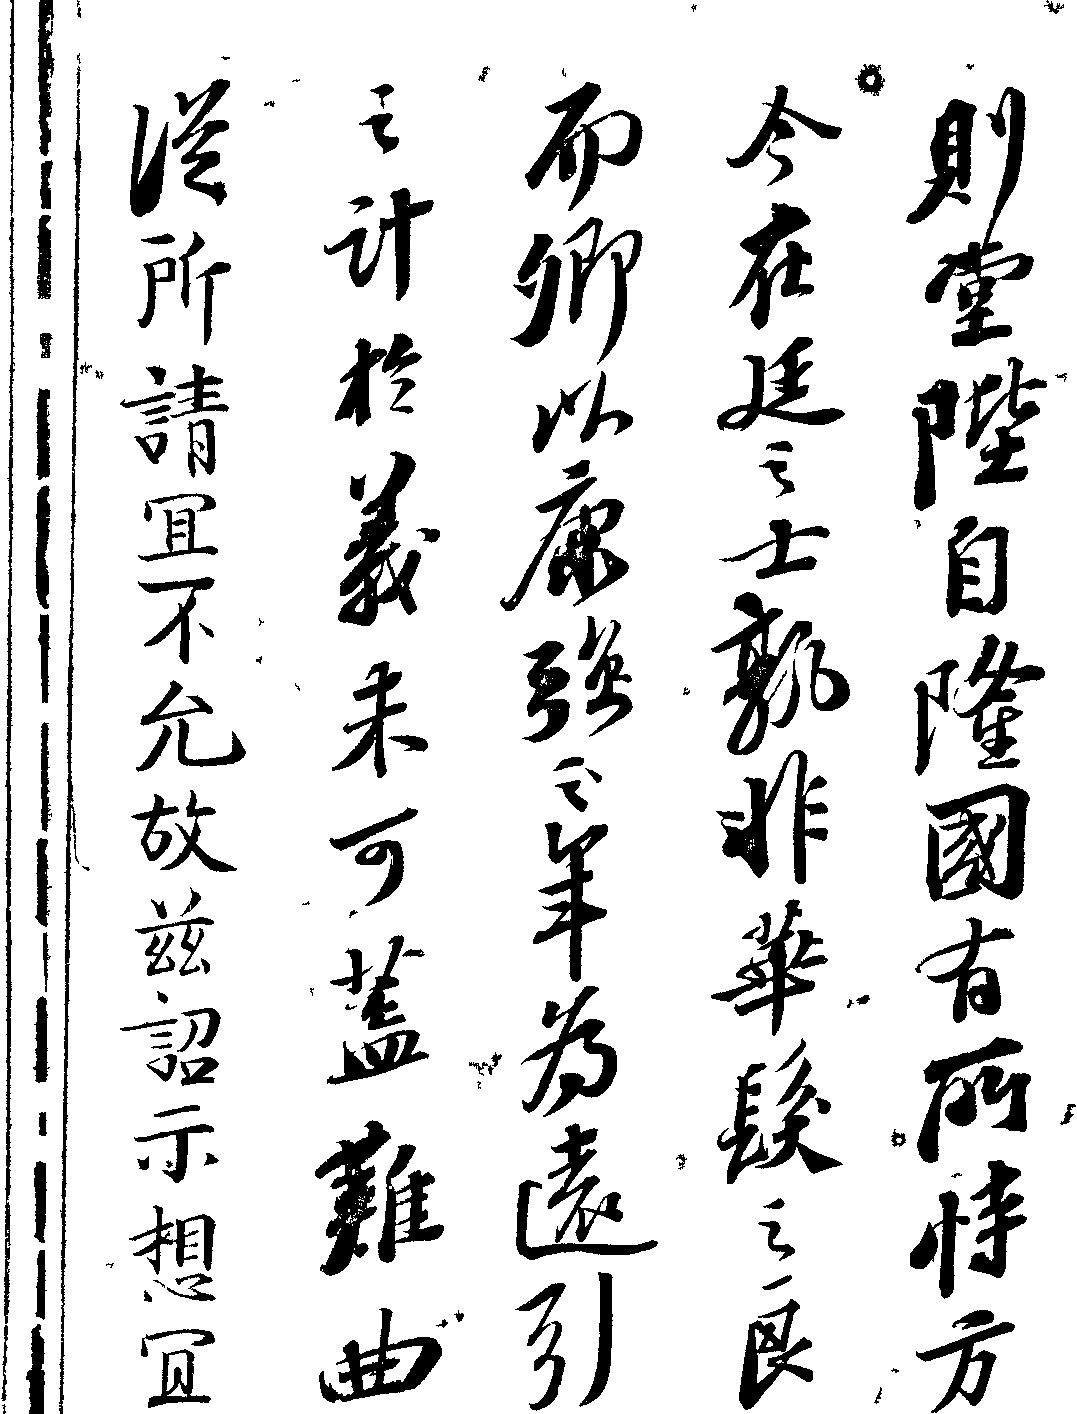 則堂陛自隆國有所恃方
今在廷之士孰非華髮之良
而卿以康強之年為遠引
之計於義未可蓋難曲
從所請宜不允故茲詔示想宜